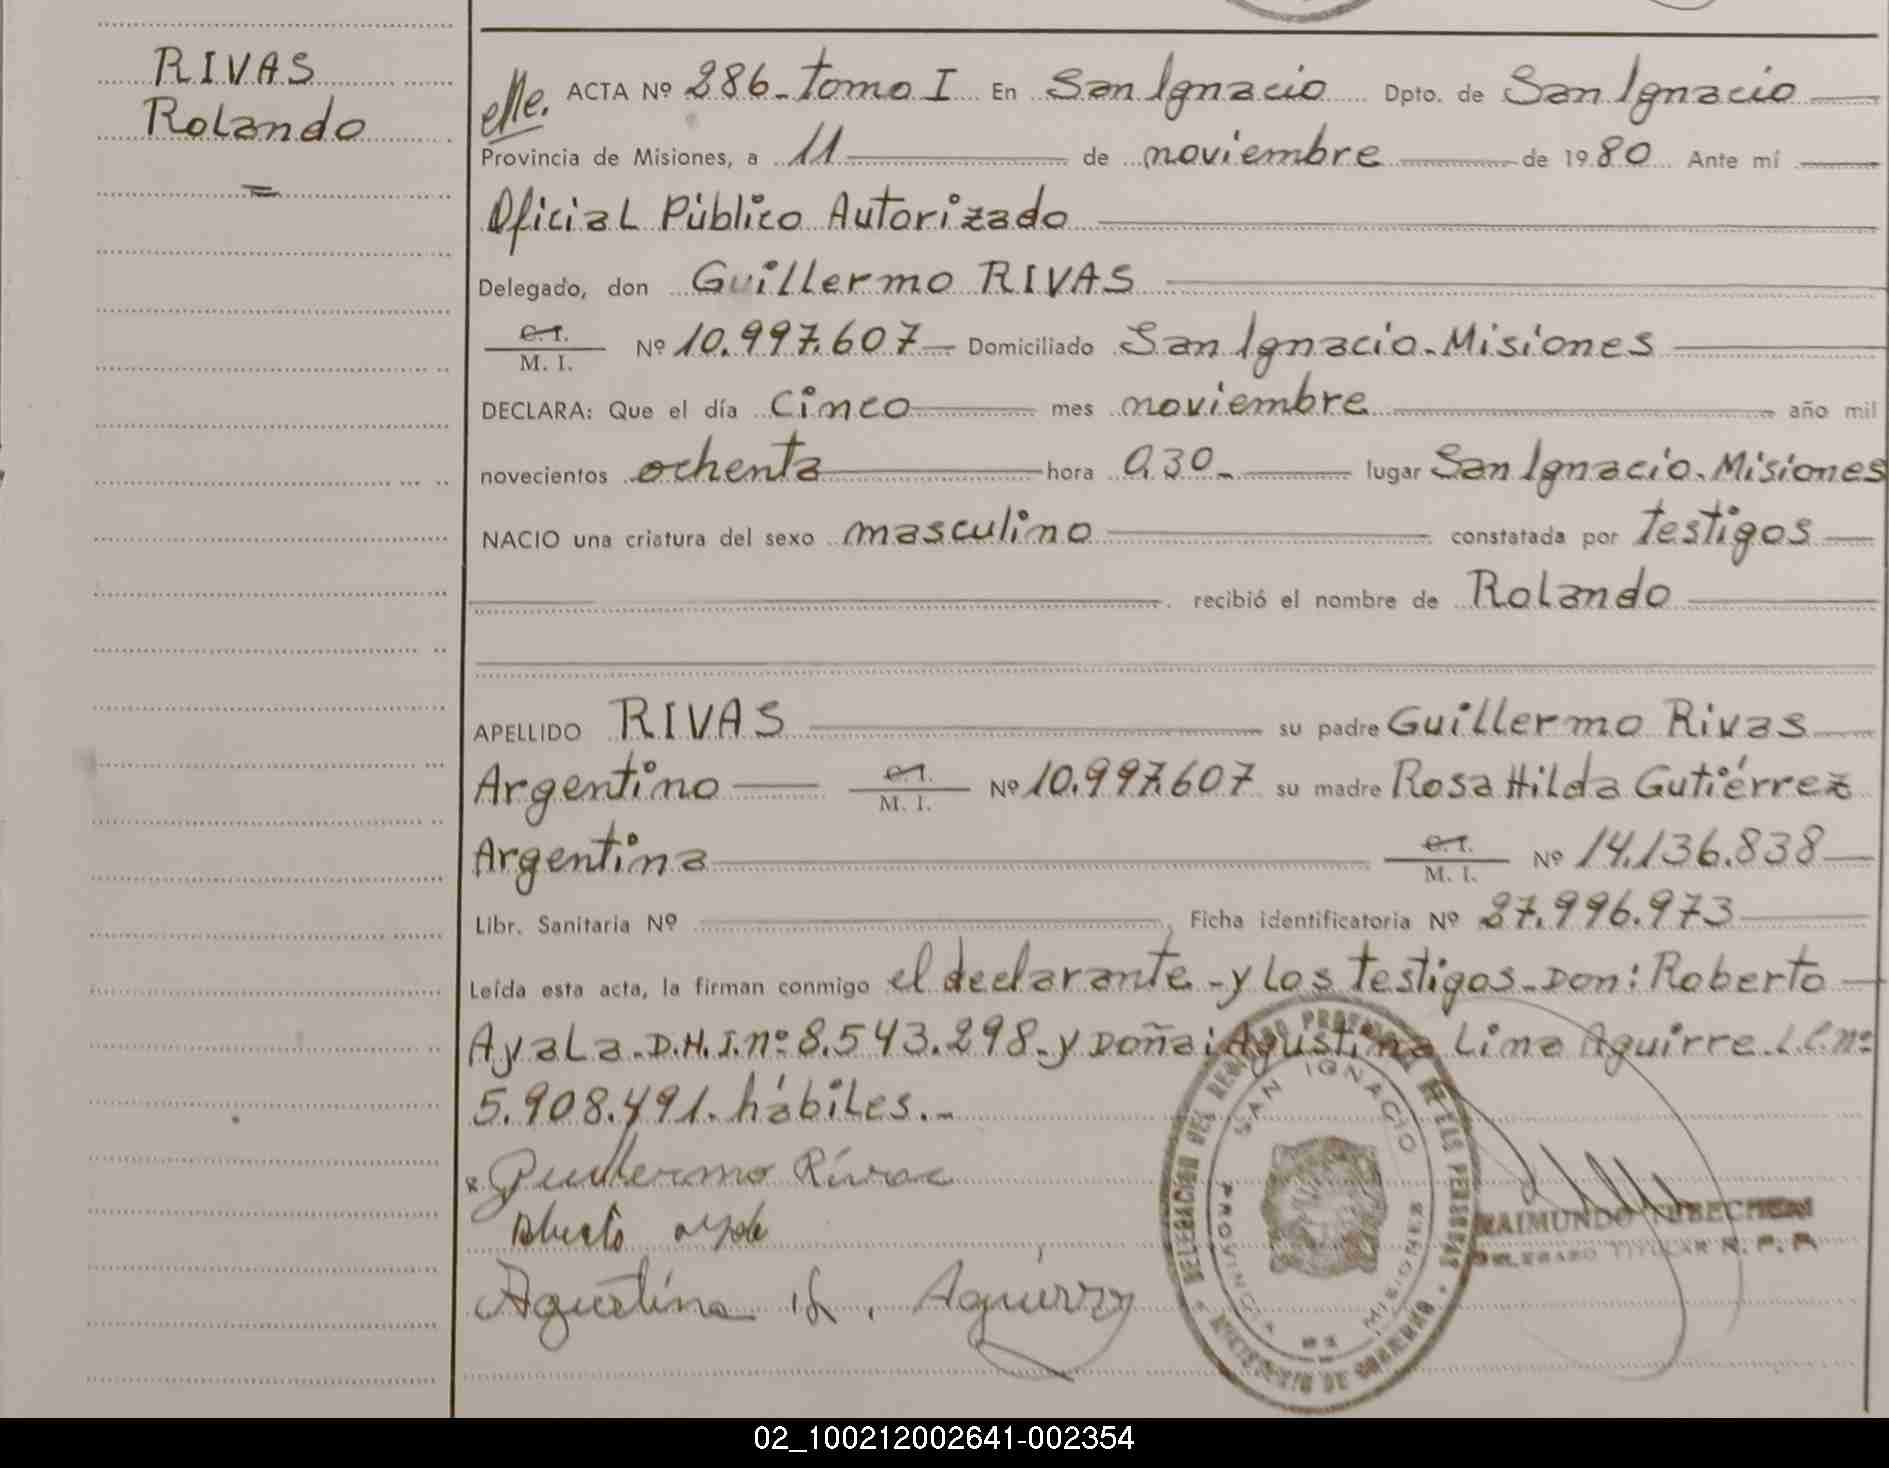 RIVAS
Rolando
=
elle. ACTA Nº 286- Tomo I En San Ignacio Dpto. de San Ignacio
Provincia de Misiones, a 11 de noviembre de 1980 Ante mí
Oficial Público Autorizado
Delegado, don Guillermo RIVAS
C.I.
M. I. Nº 10.997.607 Domiciliado San Ignacio-Misiones
DECLARA: Que el día cinco mes noviembre año mil
novecientos ochenta hora 0.30- lugar San Ignacio-Misiones
NACIO una criatura del sexo masculino constatada por testigos
recibió el nombre de Rolando
APELLIDO RIVAS su padre Guillermo Rivas
Argentino C.I. M. I. Nº 10.997.607 su madre Rosa Hilda Gutiérrez
Argentina C.I. M. I. Nº 14.136.838
Libr. Sanitaria Nº , Ficha identificatoria Nº 27.996.973
Leída esta acta, la firman conmigo el declarante-y los testigos-Don: Roberto
Ayala-D.N.I.nº:8.543.298-y Doña: Agustina Lina Aguirre-L.C.nº:
5.908.491.hábiles.-
x Guillermo Rivas
Roberto Ayala
Agustina L. Aguirre
DELEGACION DEL REGISTRO PROVINCIAL DE LAS PERSONAS
MINISTERIO DE GOBIERNO
SAN IGNACIO
PROVINCIA DE MISIONES
RAIMUNDO
DELEGADO TITULAR R. P. P.
02_100212002641-002354